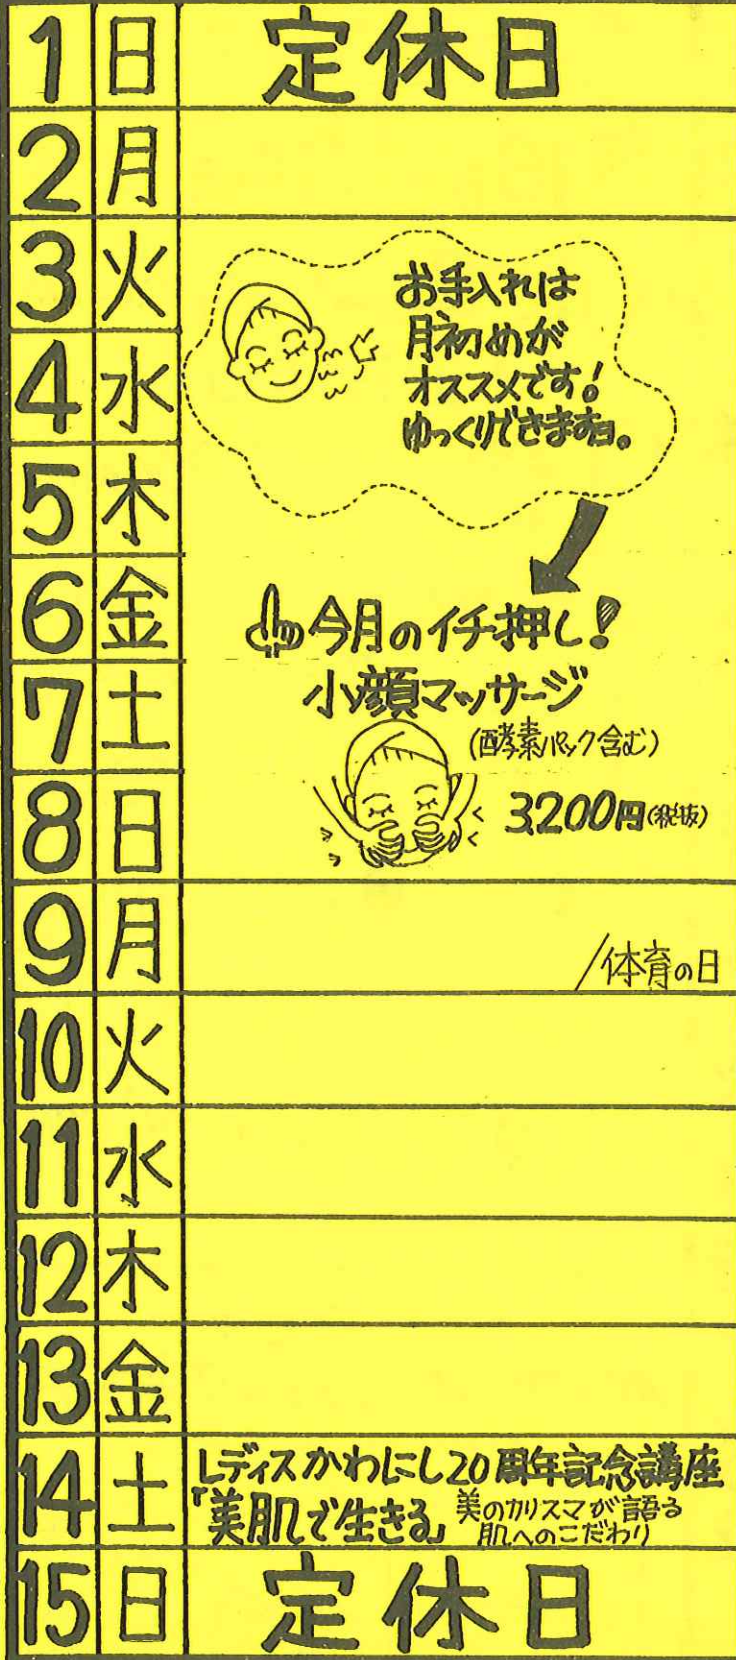 1 日 定休日
2 月
3 火
4 水
5 木
6 金
7 土
8 日
お手入れは
月初めが
オススメです!
ゆっくりできます
今月のイチ押し!
小顔マッサージ
(酵素パック含む)
3,200円(税抜)
9 月 /体育の日
10 火
11 水
12 木
13 金
14 土 レディスかわにし20周年記念講座
「美肌で生きる」 美のカリスマが語る
肌へのこだわり
15 日 定休日